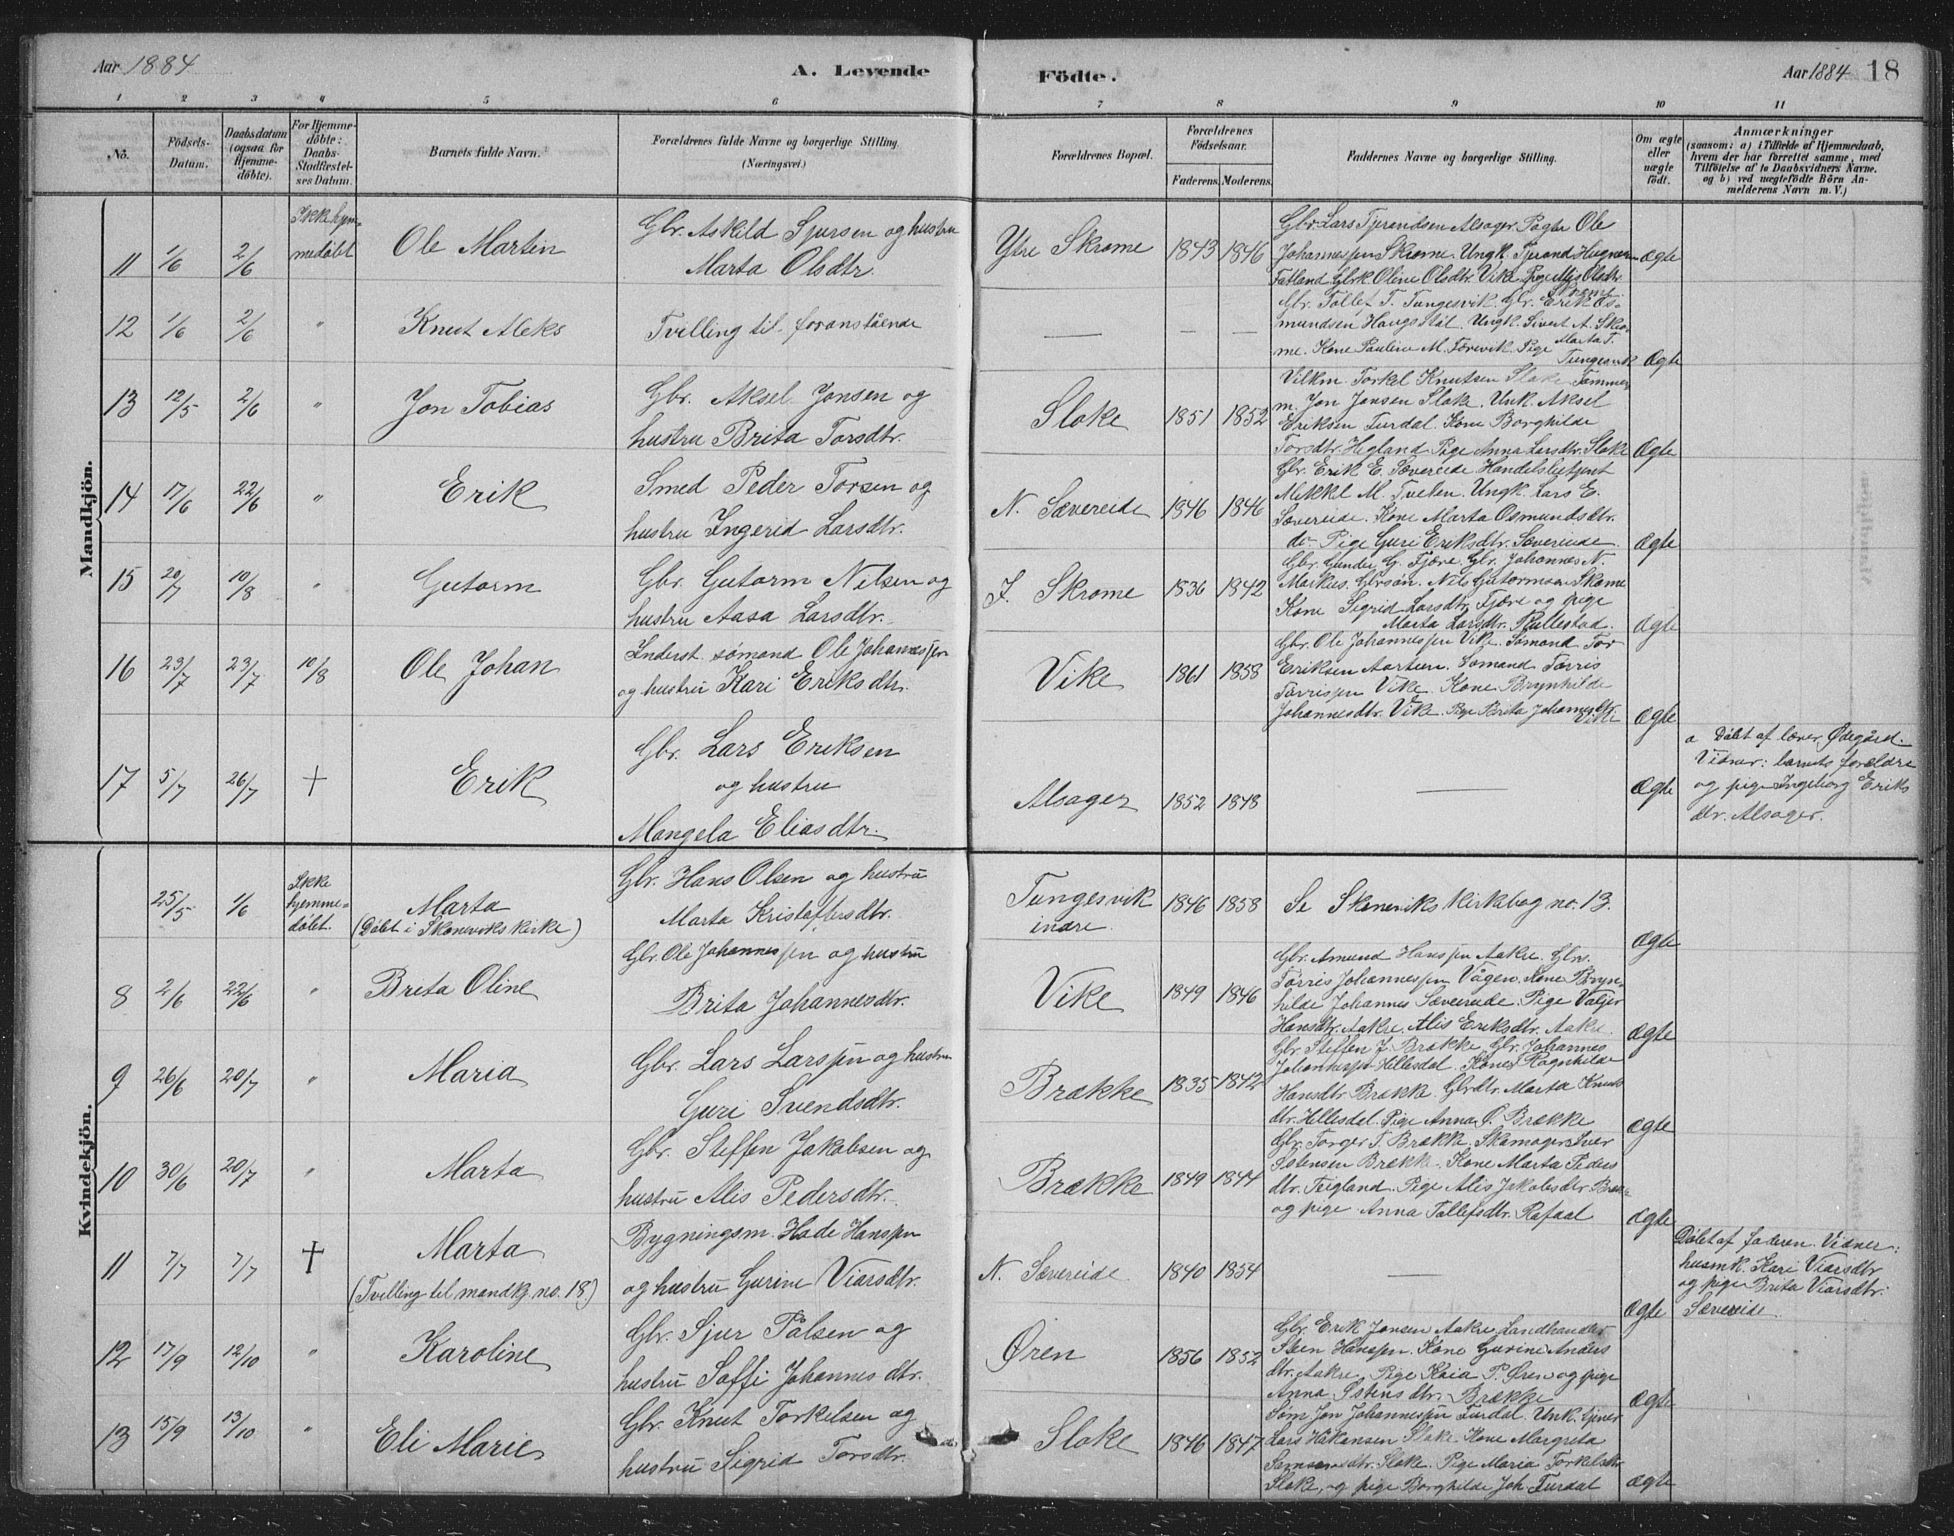 Aar 1884
A. Levende Födte.
Aar 1884 18
1 2 3 4 5 6 7 8 9 10 11
No.
Födsels-
Datum.
Daabsdatum
(ogsaa for
Hjemme-
döbte).
For Hjemme-
döbte:
Daabs-
Stadfæstel-
ses Datum.
Barnets fulde Navn.
Forældrenes fulde Navne og borgerlige Stilling.
(Næringsvei.)
Forældrenes Bopæl.
Forældrenes
Födselsaar.
Faderens. Moderens.
Faddernes Navne og borgerlige Stilling.
Om ægte
eller
uægte
födt.
Anmærkninger
(saasom: a) i Tilfælde af Hjemmedaab,
hvem der har forrettet samme, med
Tilföielse af to Daabsvidners Navne.
og b) ved uægtefödte Börn An-
melderens Navn m. V.)
Mandkjön.
11 1/6 2/6
Ikke hjem-
medöbt
Ole Martin
Gbr. Askild Sjursen og hustru
Marta Olsdtr.
Ytre Skrome 1843 1846
Gbr. Lars Tjerandsen Alsager. Ole
Johannessen Skrome. Ungk. Tjerand
Fatland Oline Olsdtr. Vike Pige
Ægte
12 1/6 2/6 "
Knut Aleks
Tvilling til foranstående
— — —
Gbr. Tollef T. Tungesvik. Gbr. Erik Os-
mundsen Haugstøl. Ungk. Sivert A. Skro-
me. Kone Pauline M. Færevik. Pige Marta T.
Tungesvik
Ægte
13 12/5 2/6 "
Jon Tobias
Gbr. Aksel Jonsen og
hustru Brita Torsdtr.
Sloke 1851 1852
Torkel Knutsen Sloke Tømmer
m. Jon Jonsen Sloke. Unk. Aksel
Eriksen Furdal. Kone Borghilde
Torsdtr. Hegland Pige Anna Larsdtr. Sloke
Ægte
14 17/6 22/6 "
Erik
Smed Peder Torsen og
hustru Ingerid Larsdtr.
N. Sævereide 1846 1846
Gbr. Erik E. Sævereide Handelsbetjent
Mikkel M. Tveten. Ungk. Lars E.
Sævereide. Kone Marta Osmundsdtr.
do Pige Guri Eriksdtr. Sævereide.
Ægte
15 20/7 10/8 "
Gutorm
Gbr. Gutorm Nilsen og
hustru Aasa Larsdtr.
I. Skrome 1836 1842
Gbr. Gunder G. Fjære. Gbr. Johannes N.
Markus. Gbrsøn. Nils Gutormsen Skrome
Kone Sigrid Larsdtr. Fjære og pige
Marta Larsdtr. Rullestad.
Ægte
16 23/7 23/7 10/8
Ole Johan
Inderst. sømand Ole Johannessen
og hustru Kari Eriksdtr.
Vike 1861 1858
Gbr. Ole Johannessen Vike. Sømand Tor
Eriksen Aartun. Sømand Tørris
Tørrissen Vike. Kone Brynhilde
Johannesdtr. Vike. Pige Brita Johannesdtr.
Vike
Ægte
17 5/7 26/7 +
Erik
Gbr. Lars Eriksen
og hustru
Mangela Eliasdtr.
Alsager 1852 1848
—
Ægte
a Döbt af lærer Ødegård.
Vidner: barnets forældre
og pige Ingeborg Eriks
dtr. Alsager.
Kvindekjön.
25/5 1/6
Ikke
hjemme-
døbt.
Marta
(Døbt i Skonevikskirke)
Gbr. Hans Olsen og hustru
Marta Kristoffersdtr.
Tungesvik
indre.
1846 1858
Se Skoneviks kirkebog no. 13.
Ægte
8 2/6 22/6 "
Brita Oline
Gbr. Ole Johannessen og hustru
Brita Johannesdtr.
Vike 1849 1846
Gbr. Amund Hanssen Aakre. Gbr.
Tørris Johannessen Vågen. Kone Bryn-
hilde Johannes Sævereide. Pige Valjer
Hansdtr. Aakre. Alis Eriksdtr. Aakre.
Ægte
9 26/6 20/7 "
Maria
Gbr. Lars Larssen og hustru
Guri Svendsdtr.
Brække 1835 1842
Gbr. Steffen J. Brække. Gbr. Johannes
Johannessen Hellesdal. Kone Ragnhilde
Hansdtr. Brækk. Gbrdtr. Marta Knuts
dtr. Hellesdal. Pige Anna Ø. Brække
Ægte
10 30/6 20/7 "
Marta
Gbr. Steffen Jakobsen og
hustru Alis Pedersdtr.
Brække 1849 1844
Gbr. Torger T. Brækk. Skomager Iver
Østensen Brækk. Kone Marta Peders
dtr. Teigland. Pige Alis Jakobsdtr. Brække
og pige Anna Tollefsdtr. Rafaal
Ægte
11 7/7 7/7 +
Marta
(Tvilling til mandkj. no. 18.)
Bygningsm. Hade Hanssen
og hustru Gurine Viarsdtr.
N. Sævereide 1840 1854
—
Ægte
Döbt af faderen. Vidner:
husmk. Kari Viarsdtr
og pige Brita Viarsdtr.
Sævereide.
12 17/9 12/10 "
Karoline
Gbr. Sjur Pålsen og
hustru Soffi Johannesdtr.
Øren 1856 1852
Gbr. Erik Jonsen Aakre. Landhandler
Steen Hanssen. Kone Gurine Anders
dtr. Aakre. Pige Kaia P. Øren og pige
Anna Østensdtr. Brække
Ægte
13 15/9 13/10 "
Eli Marie
Gbr. Knut Torkelsen og
hustru Sigrid Torsdtr.
Sloke 1846 1847
Søm. Jon Johannessen Furdal. Unk. tjener
Lars Håkonsen Sloke. Kone Margreta
Samsonsdtr. Sloke. Pige Maria Torkelsdtr
Sloke, og pige Borghilde Joh. Furdal
Ægte